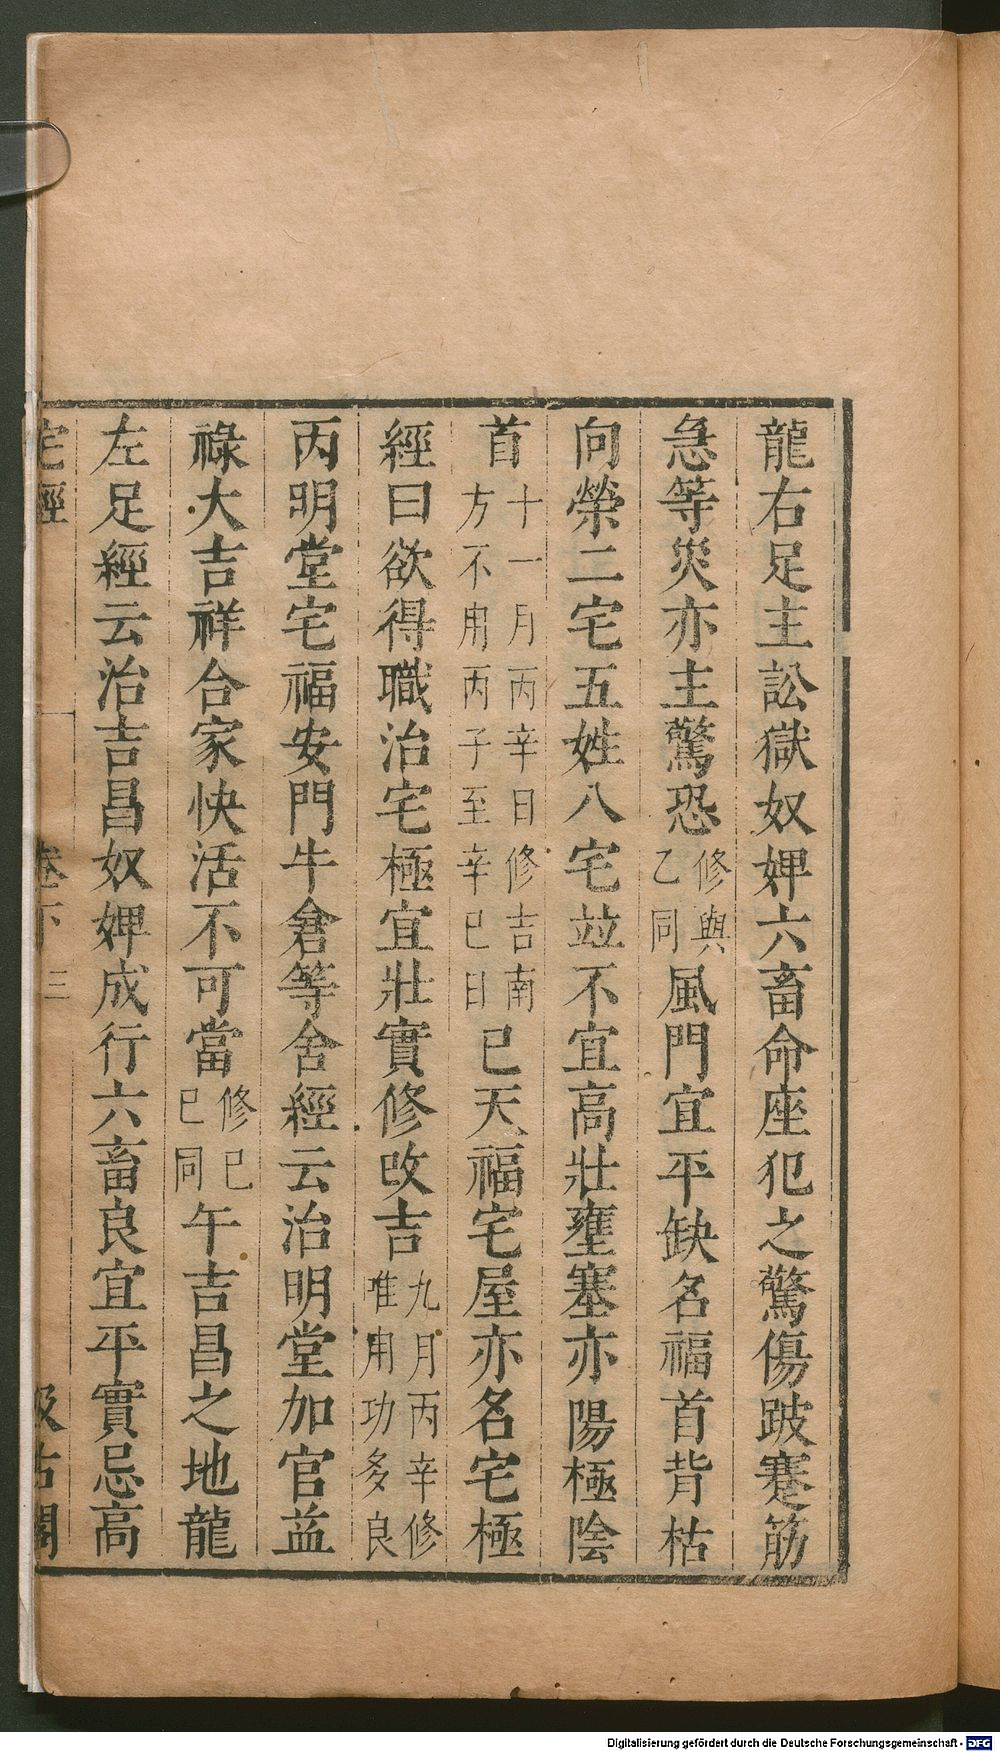 龍右足主訟獄奴婢六畜命座犯之驚傷跛蹇筋
急等災亦主驚恐修與乙同風門宜平缺名福首背枯
向榮二宅五姓八宅竝不宜高壯壅塞亦陽極陰
首十一月丙辛日修吉南方不用丙子至辛巳日巳天福宅屋亦名宅極
經曰欲得職治宅極宜壯實修改吉九月丙辛修唯用功多良
丙明堂宅福安門牛倉等舍經云治明堂加官益
祿大吉祥合家快活不可當修巳巳同午吉昌之地龍
左足經云治吉昌奴婢成行六畜良宜平實忌高
宅經 卷下 三 汲古閣
Digitalisierung gefördert durch die Deutsche Forschungsgemeinschaft - DFG